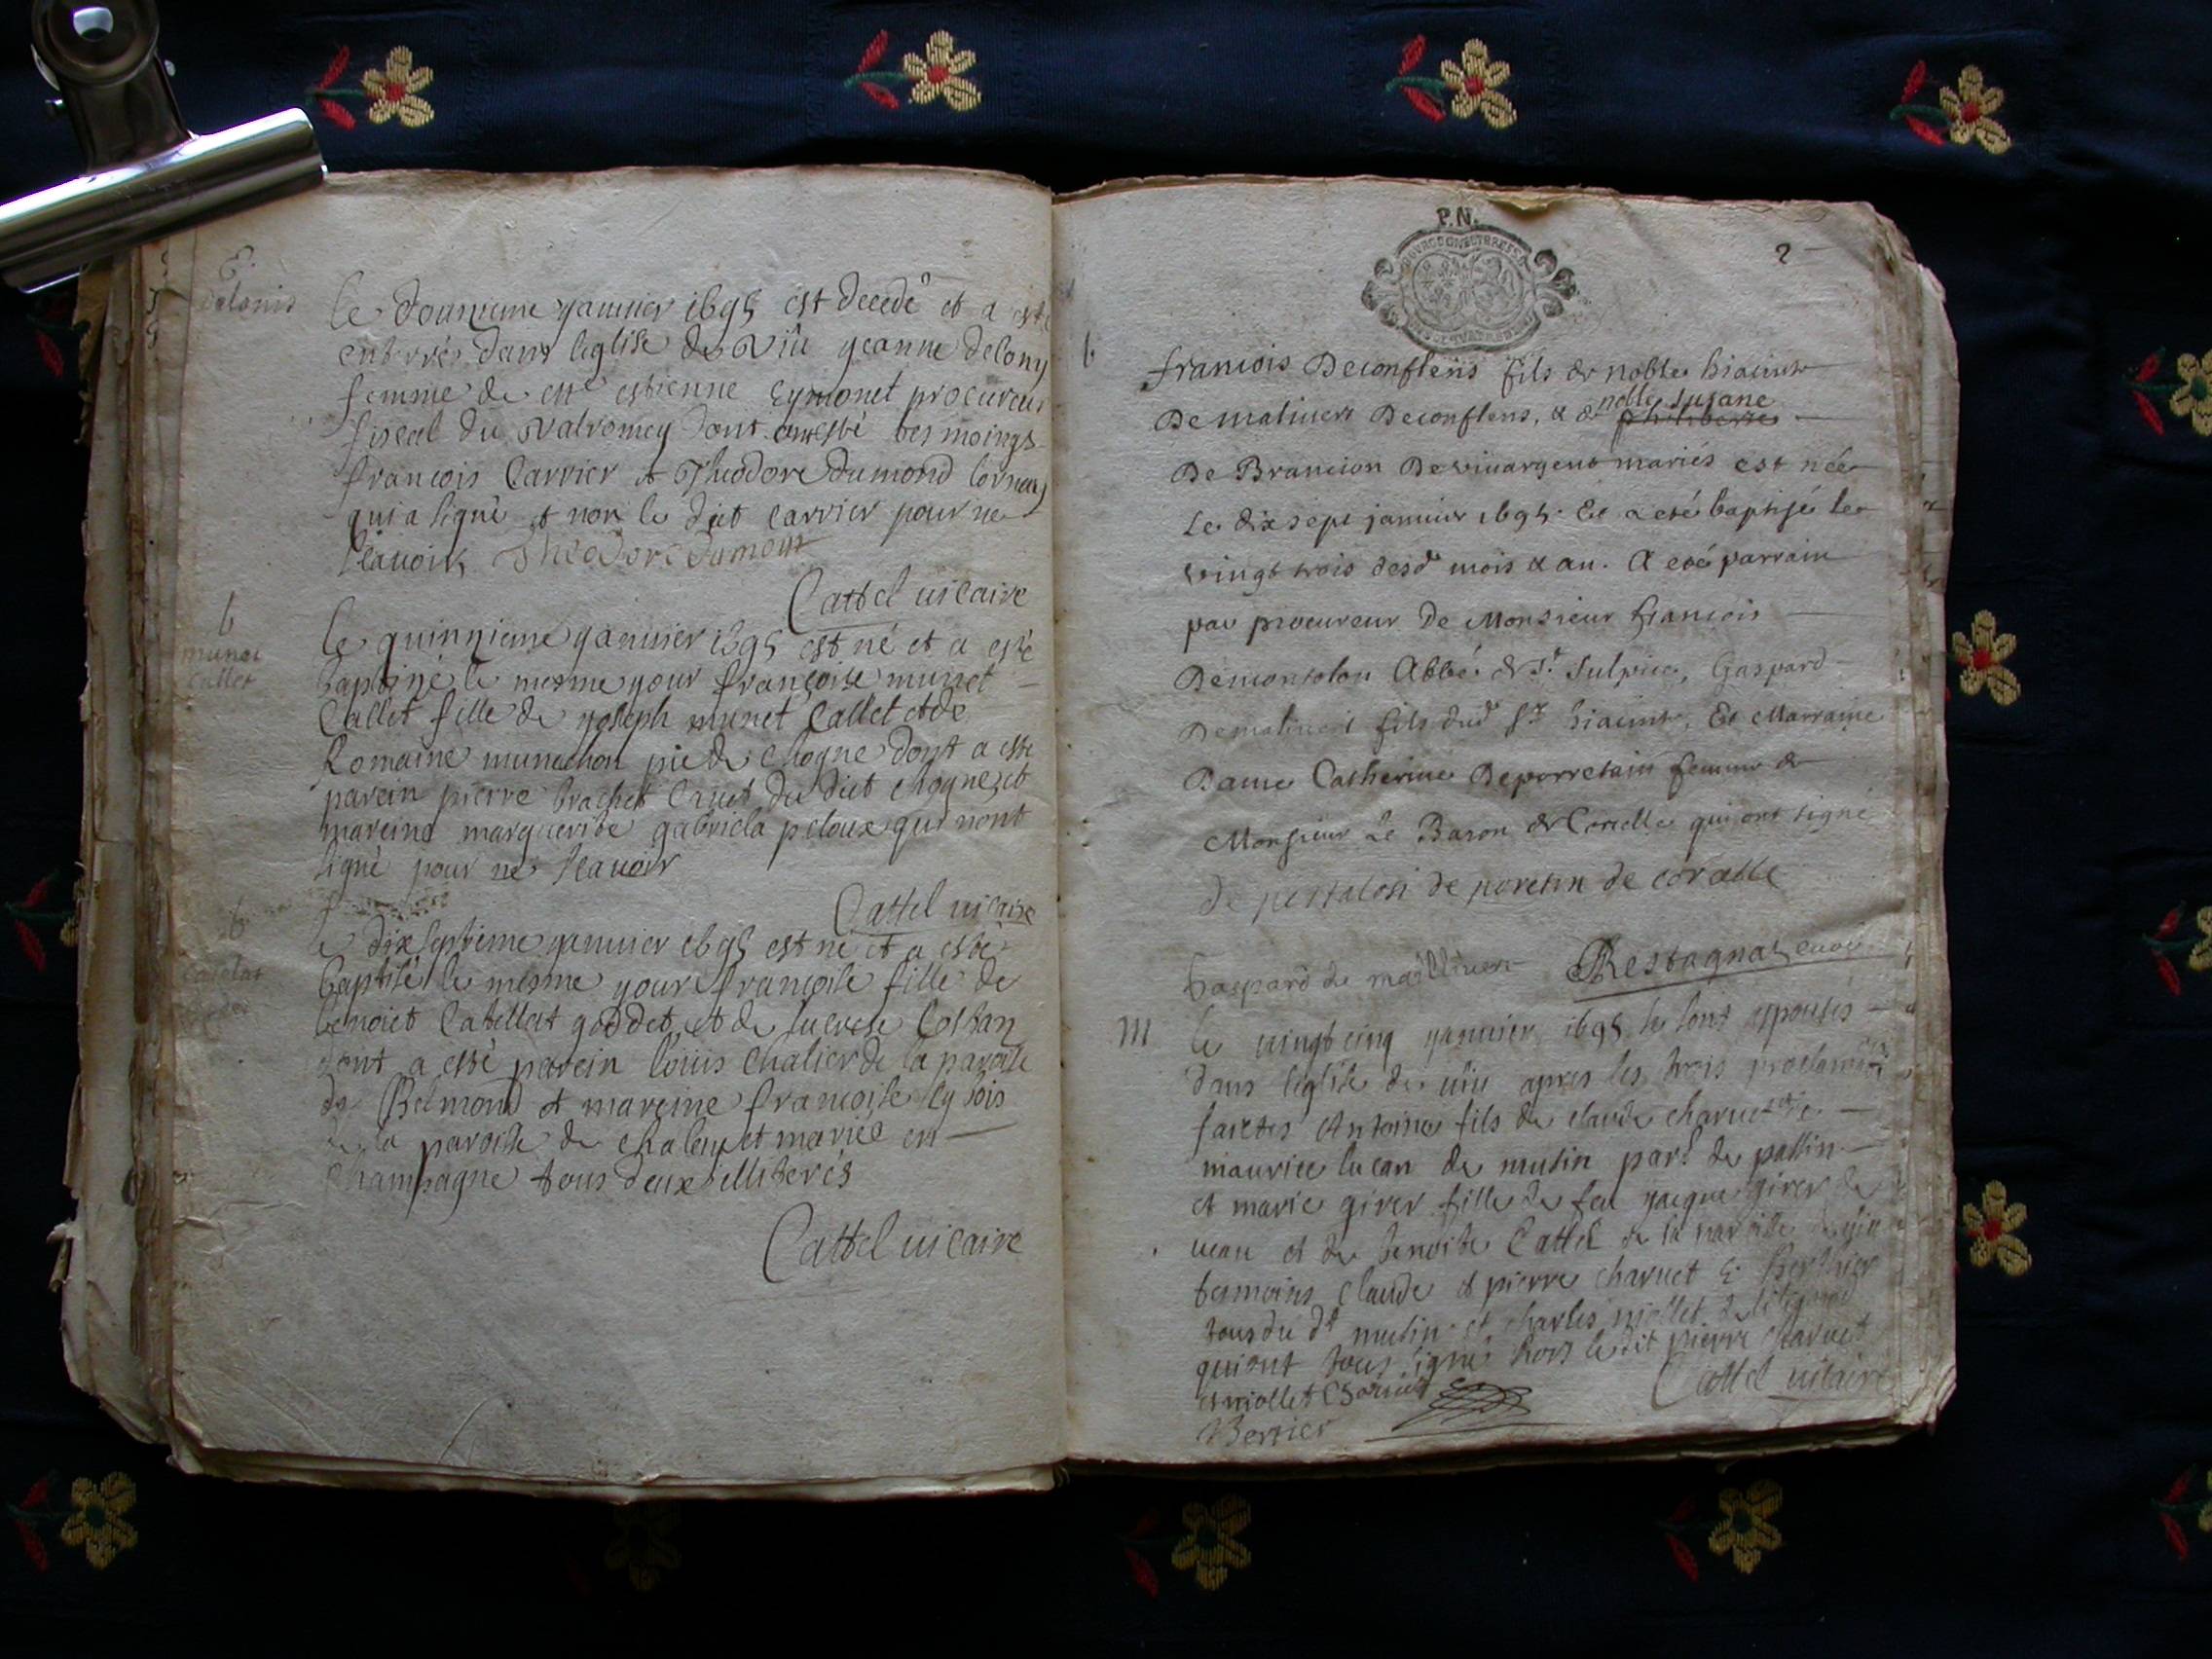 E.
delonis
le douzieme yanuier 1695 est decedé et a esté
enterrée dans leglise de Viû yeanne delony
femme de me estienne Eymonet procureur
fiscal du Valromey dont ont esté tesmoings
françois Carrier et Theodore dumond
qui a signé et non le dict Carrier pour ne
sçauoir, Theodore dumont
Cattel uicaire
b
munet
Callet
le quinzieme yanuier 1695 est né et a esté
baptizé le mesme your françoise munet
Callet fille de yoseph munet Callet et de
Romaine munachon de Chogne dont a esté
parein pierre brachet Canet du dict chogne et
mareine marguerite gabriela peloux qui nont
signé pour ne sçauoir
Cattel uicaire
b
le dixseptieme yanuier 1695 est né et a esté
baptisé le mesme your françoise fille de
benoict Catellat goddet et de lucrece Costaz
dont a esté parein louis Chalier de la paroisse
de Belmond et mareine francoise
de la paroisse de et mariée en
Champagne tous deux illiterés
Cattel uicaire
P.N.
2
b
francois Deconflens fils de noble hiacinte
De maliuert Deconflens, & de noble susane philiberte
De Brancion Deviuargent mariés est née
Le dix sept januier 1695. Et a eté baptisé le
vingt trois desd mois & an. A eté parrain
par procureur De Monsieur francois
Demontolon Abbé de St. Sulpice, Gaspard
Demaliuert fils dud Sr hiacinte, Et Marraine
Dame Catherine Deporretain femme de
Monsieur Le Baron de Corcelle qui ont signé
de pestalosi de poretin de coralle
Gaspard de malliuert Restagnat curé
M
le uingt cinq yanuier 1695 se sont epousés
dans leglise de uiu apres les trois proclama
faictes Antoine fils de claude charuet et de
maurice lucan de musin par? de passin
et marie girer fille de feu yacque girer de
uean et de benoite Cattel de la paroisse de
tesmoins Claude et pierre charuet E. Berthier
tous du dt musin et charles miollet de
qui ont tous signé hors le dit pierre charuet
C miollet Charuet Cattel uicaire
Berrier